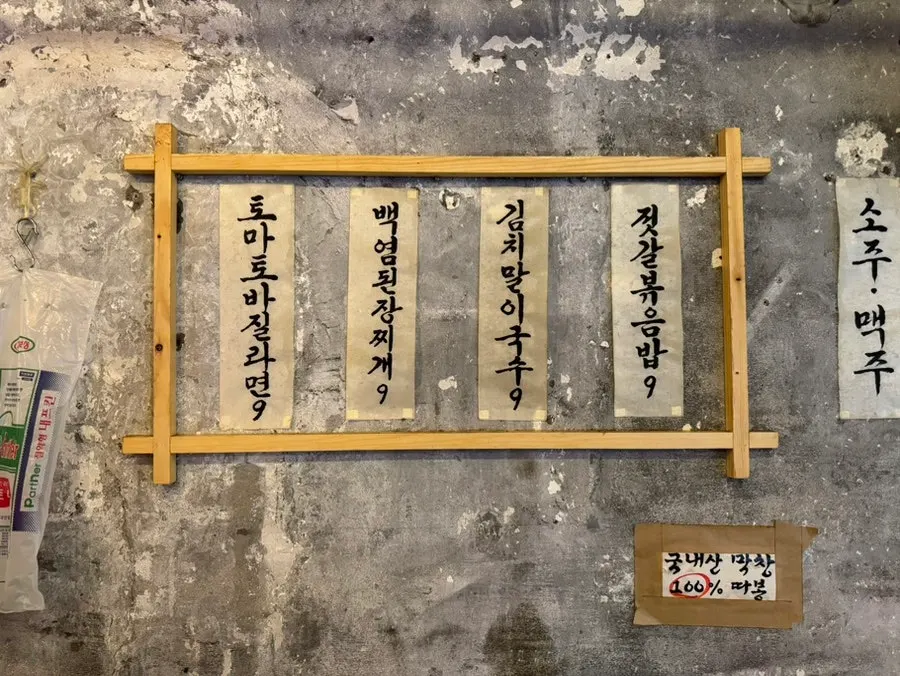 토마토바질라면 9
백염된장찌개 9
김치말이국수 9
젓갈볶음밥 9
소주·맥주
국내산 막창
100% 따봉
Partner 실악형 내프킨